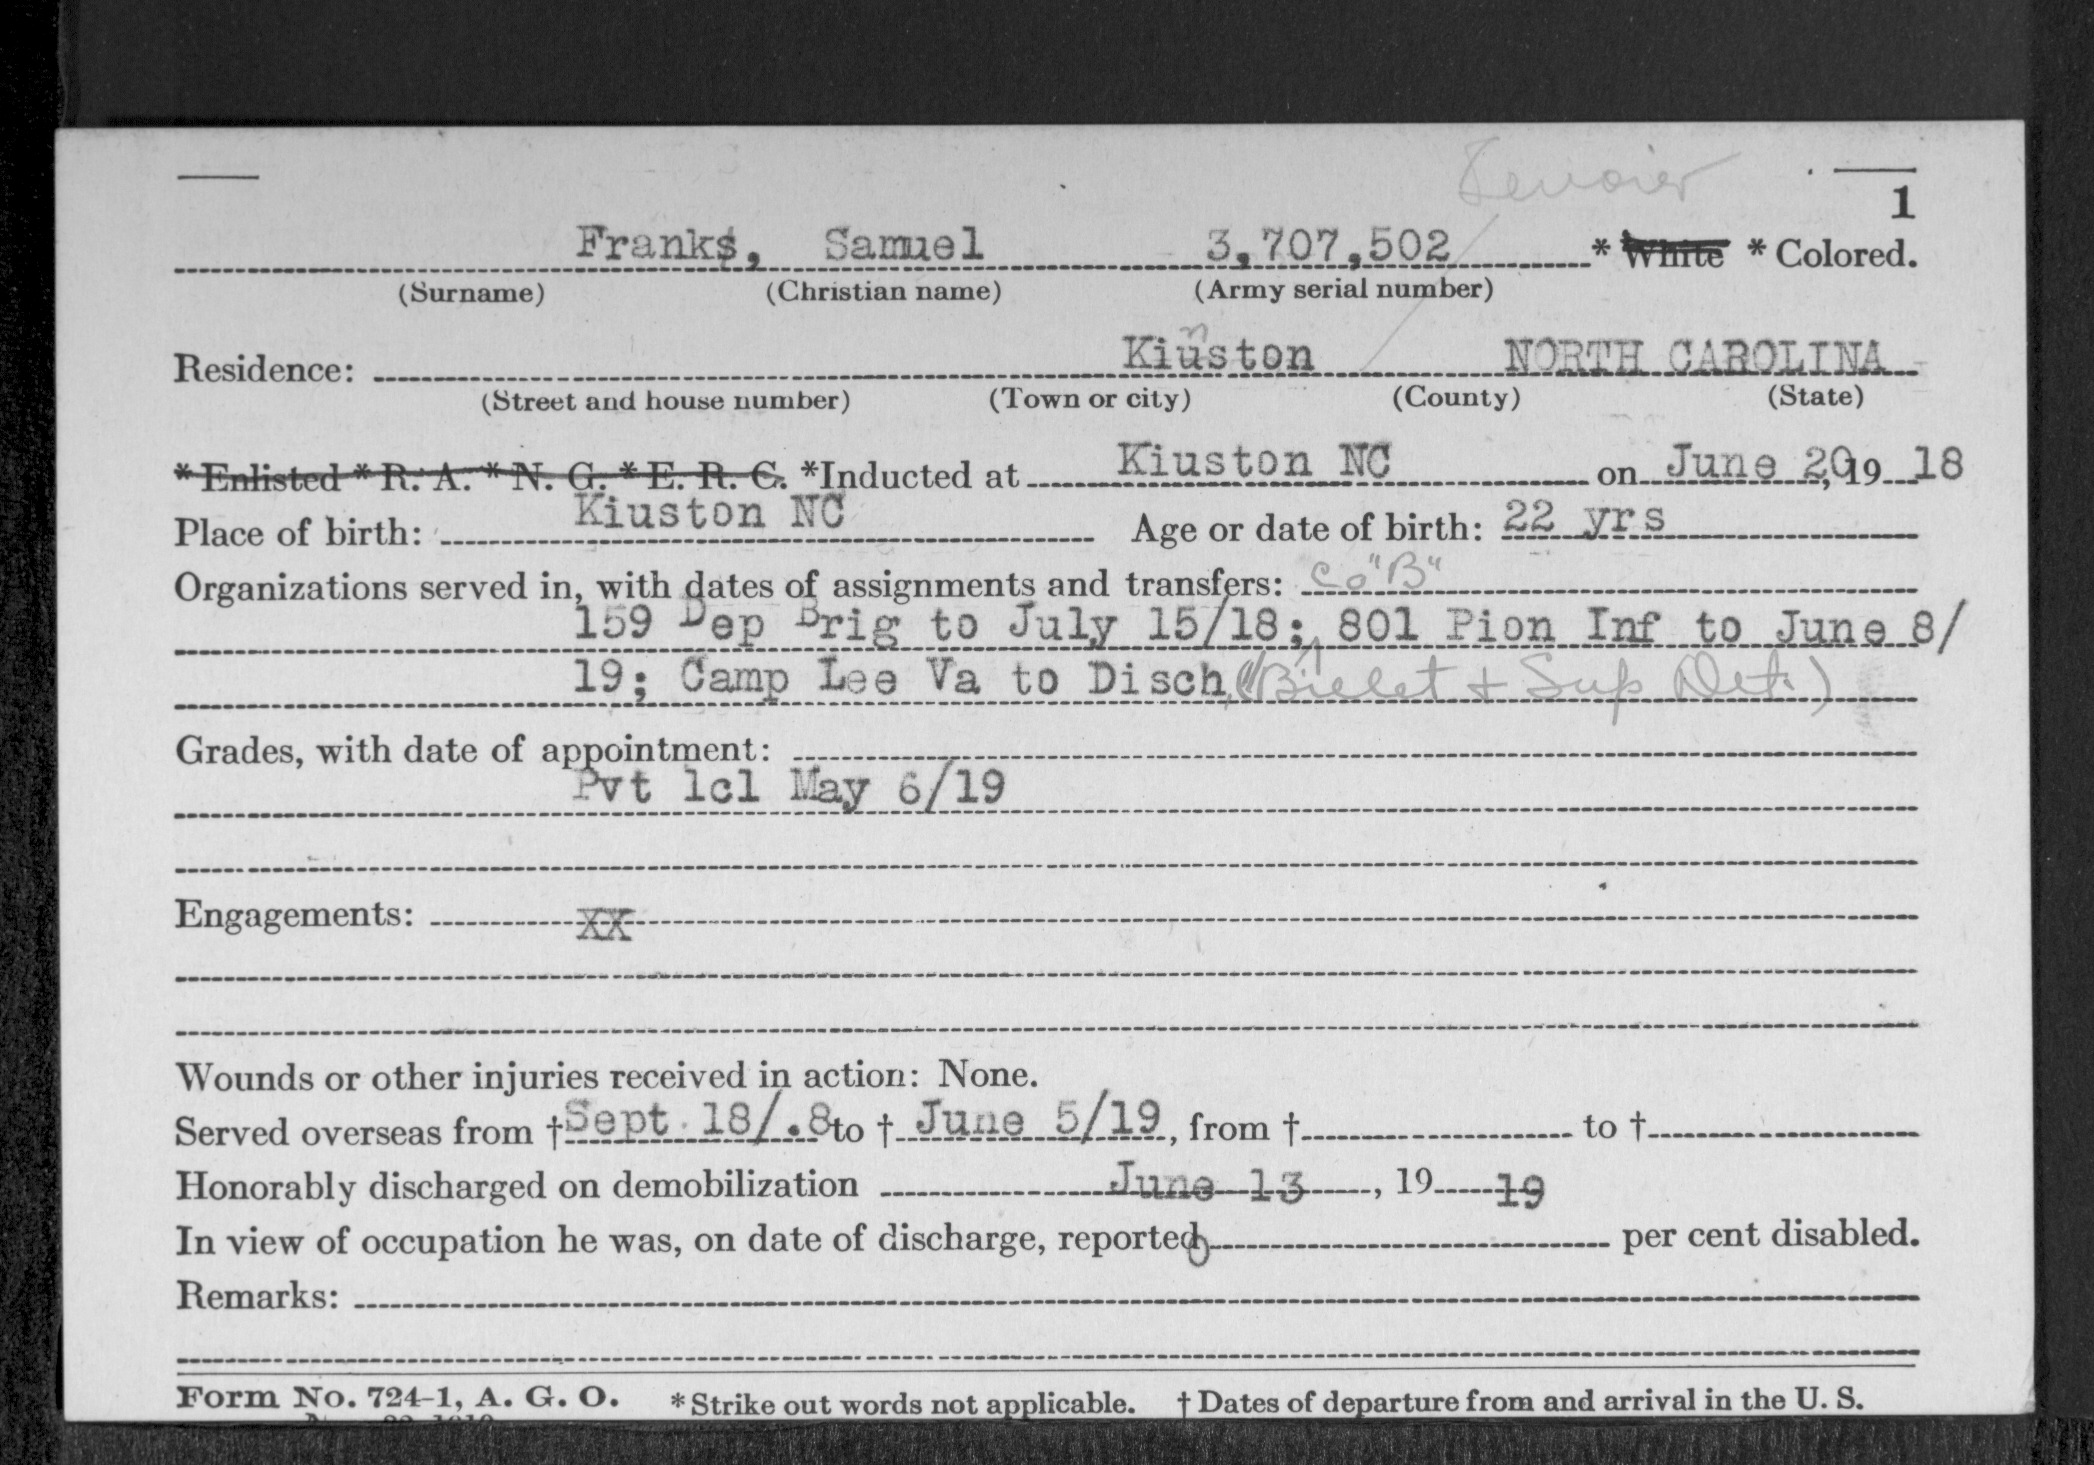 Lenoir
1
Franks, Samuel 3,707,502 * White * Colored.
(Surname) (Christian name) (Army serial number)
n
Residence: Kiuston NORTH CAROLINA
(Street and house number) (Town or city) (County) (State)
* Enlisted * R. A. * N. G. * E. R. C. *Inducted at Kiuston NC on June 20, 19 18
Place of birth: Kiuston NC Age or date of birth: 22 yrs
Organizations served in, with dates of assignments and transfers: Co "B"
159 Dep Brig to July 15/18; 801 Pion Inf to June 8/
19; Camp Lee Va to Disch (Billet + Sup Det.)
Grades, with date of appointment:
Pvt 1cl May 6/19
Engagements: XX
Wounds or other injuries received in action: None.
Served overseas from † Sept 18/.8 to † June 5/19, from † to †
Honorably discharged on demobilization June 13, 19 19
In view of occupation he was, on date of discharge, reported 0 per cent disabled.
Remarks:
Form No. 724-1, A. G. O. * Strike out words not applicable. † Dates of departure from and arrival in the U. S.